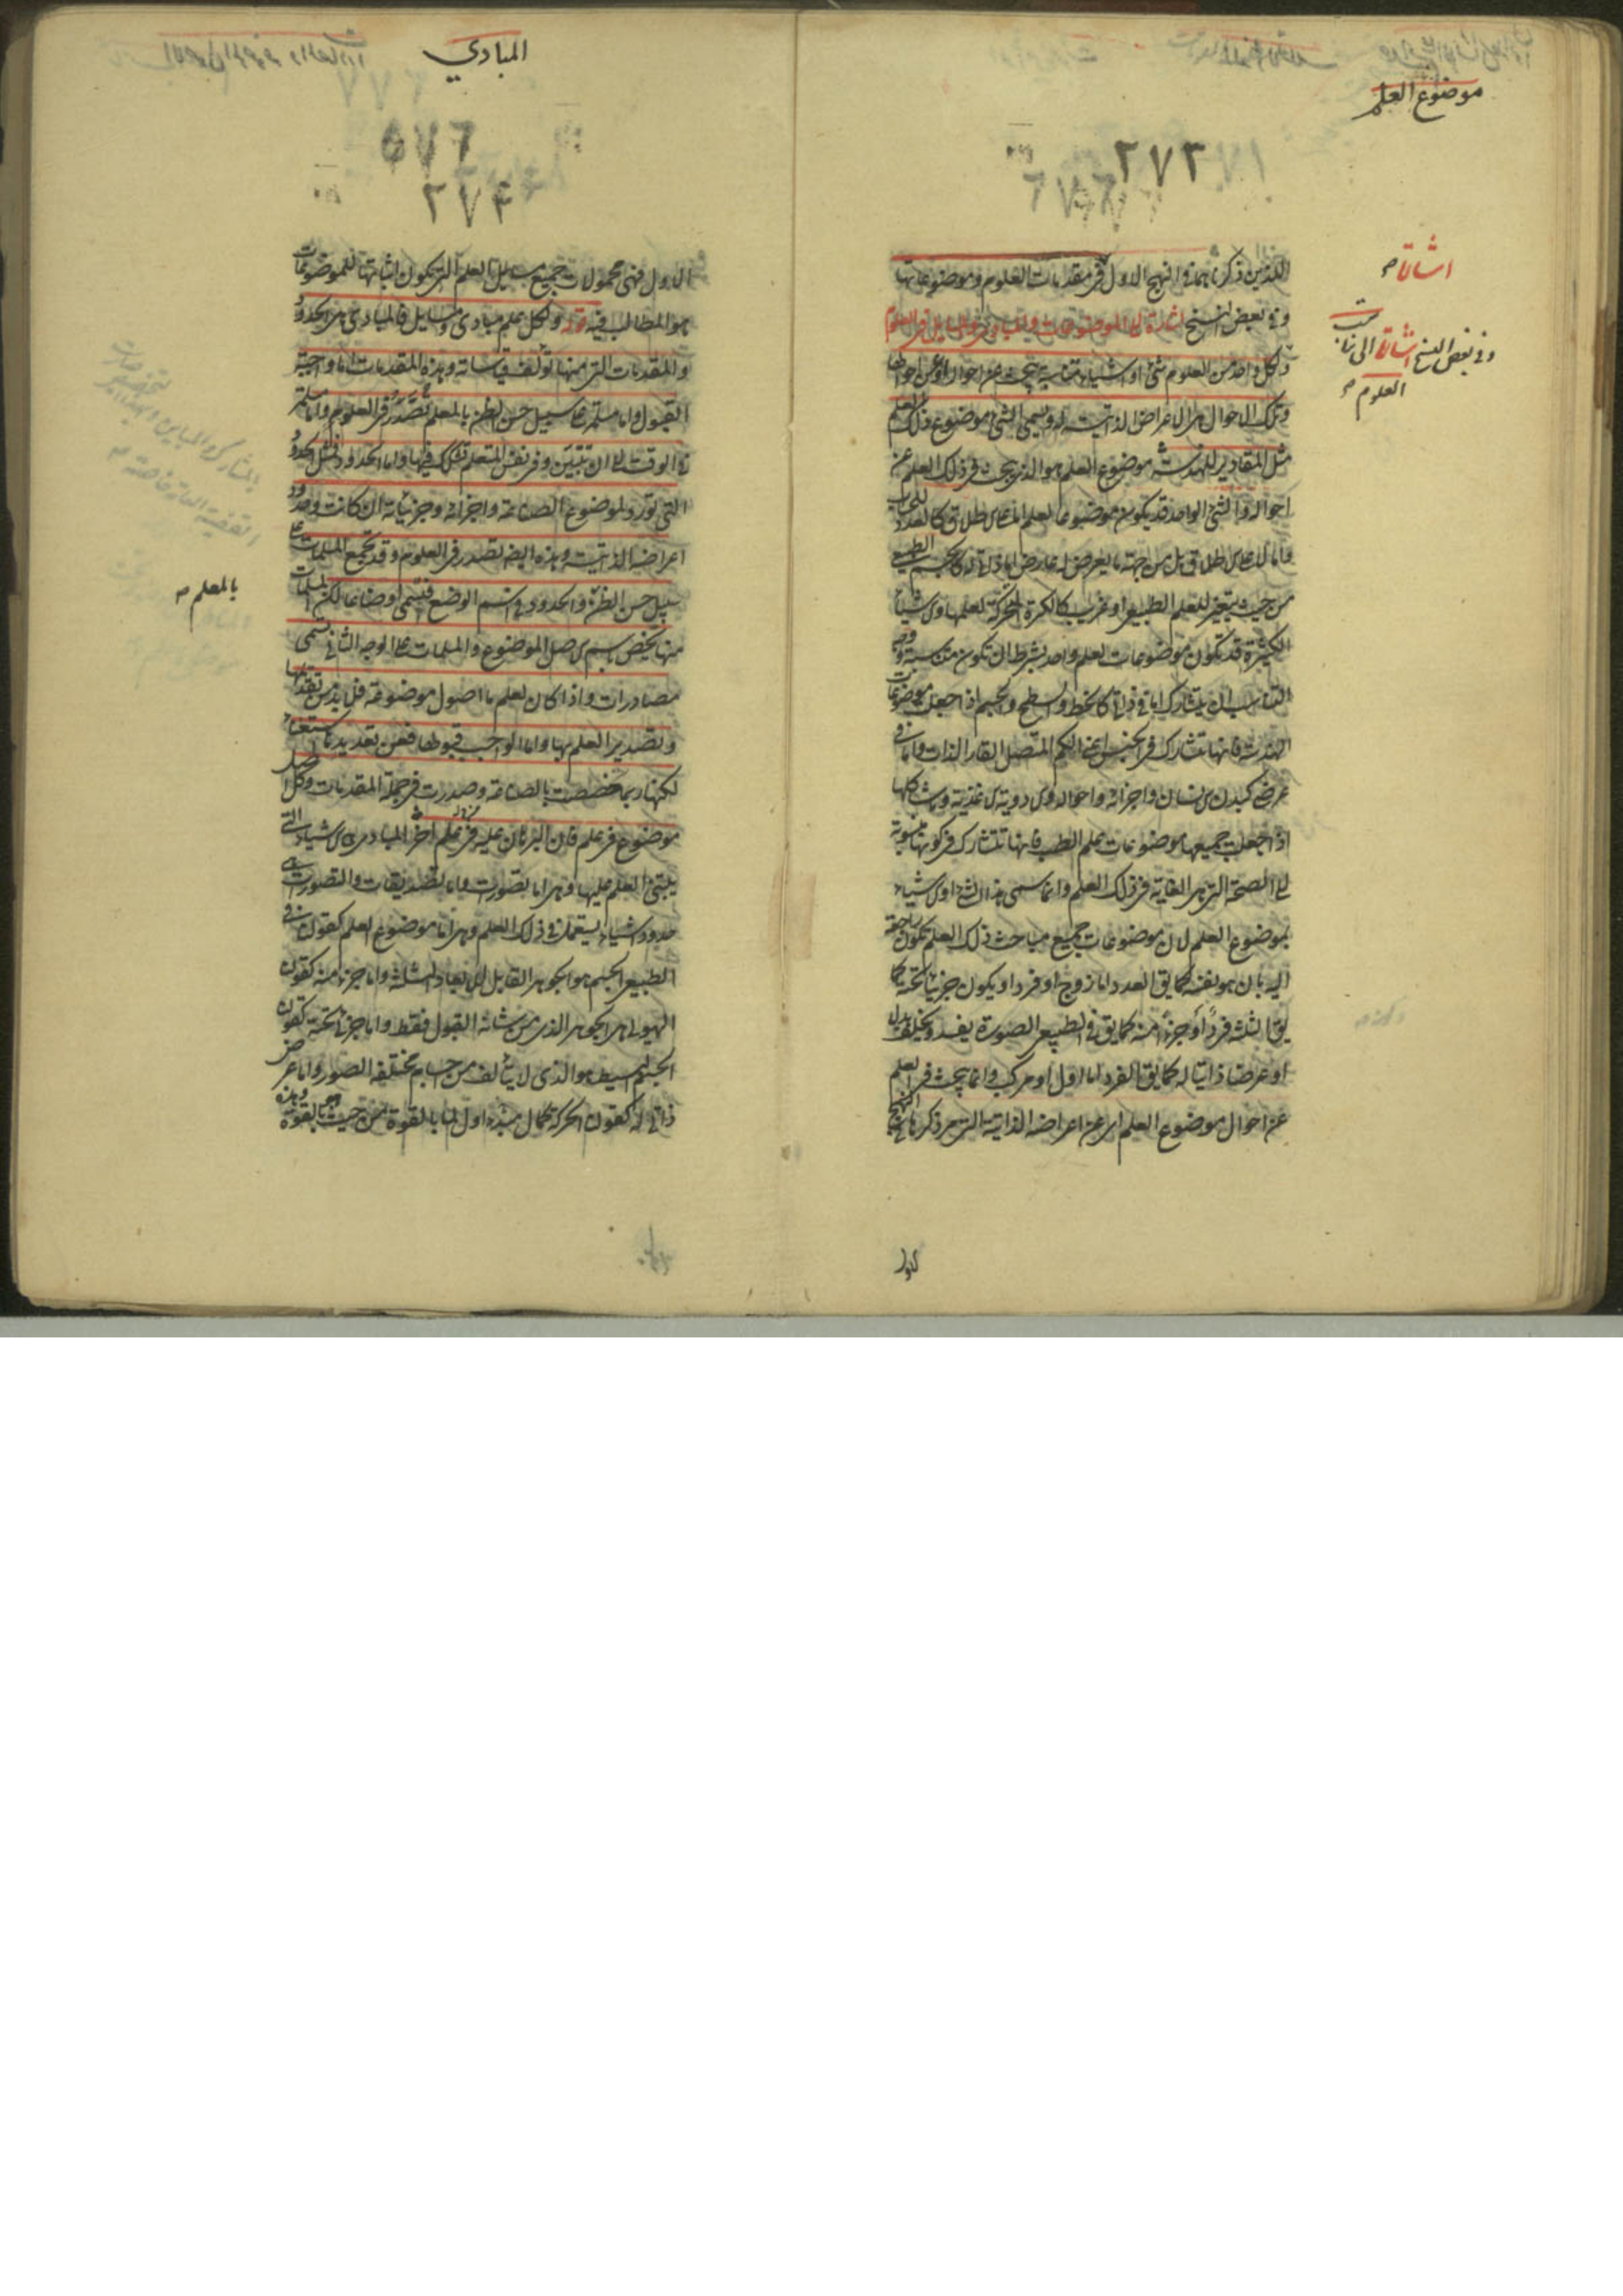 موضوع العلم
٢٧٣
اشارة
وفى بعض النسخ اشارة الى تناسب
العلوم
اللذين ذكرناهما فى النهج الاول فى مقدمات العلوم وموضوعاتها
وفى بعض النسخ اشارة الى الموضوعات والمبادى والمسايل فى العلوم
ولكل واحد من العلوم شئ او اشياء متناسبة يبحث عن احواله او عن احوالها
وتلك الاحوال هى الاعراض الذاتية له ويسمى الشئ موضوع ذلك العلم
مثل المقادير للهندسة موضوع العلم هو الذى يبحث فى ذلك العلم عن
احواله والشئ الواحد قد يكون موضوعا لعلم اما على الاطلاق كالعدد للحساب
واما لا على الاطلاق بل من جهة ما يعرض له عارض اما ذاتى له كالجسم الطبيعى
من حيث يتغير للعلم الطبيعى او غريب كالكرة المتحركة لعلمها والاشياء
الكثيرة قد تكون موضوعات لعلم واحد بشرط ان تكون متناسبة ووجه
التناسب ان يتشارك اما فى ذاتى كالخط والسطح والجسم اذا جعلت موضوعات
الهندسة فانها تتشارك فى الجنس اعنى الكم المتصل القار الذات واما فى
عرضى كبدن الانسان واجزائه واحواله والادوية والاغذية وما شاكلها
اذا جعلت جميعها موضوعات علم الطب فانها تتشارك فى كونها منسوبة
الى الصحة التى هى الغاية فى ذلك العلم وانما سمى هذا الشئ او الاشياء
بموضوع العلم لان موضوعات جميع مباحث ذلك العلم تكون راجعة
اليه بان هو نفسه كما يق العدد اما زوج او فرد او يكون جزئيا تحته كما
يق الثلثة فرد او جزءا منه كما يق فى الطبيعى الصورة يفسد ويخلف بدل
او عرضا ذاتيا له كما يق الفرد اما اول او مركب وانما يبحث فى العلم
عن احوال موضوع العلم اى عن اعراضه الذاتية التى مر ذكرها فى النهج
الاول
المبادي
٢٧۴
الاول فهى محمولات جميع مسايل العلم التى يكون اثباتها للموضوعات
هو المطالب فيه قوله ولكل علم مبادى ومسايل فالمبادى هى الحدود
والمقدمات التى منها تؤلف قياساته وهذه المقدمات اما واجبة
القبول واما مسلمة على سبيل حسن الظن بالمعلم تصدر فى العلوم واما مسلمة
فى الوقت الى ان تتبين وفى نفس المتعلم تشكك فيها واما الحدود فمثل الحدود
التى تورد لموضوع الصناعة واجزائه وجزئياته ان كانت وحدود
اعراضه الذاتية وهذه ايضه تصدر فى العلوم وقد تجمع المسلمات على
سبيل حسن الظن والحدود فى اسم الوضع فتسمى اوضاعا لكن المسلمات
منها يختص باسم الاصل الموضوع والمسلمات على الوجه الثانى تسمى
بالمعلم
مصادرات واذا كان لعلم ما اصول موضوعة فلا بد من تقديمها
وتصدير العلم بها واما الواجب قبولها فعن تعديدها استغناء
لكنها ربما خصصت بالصناعة وصدرت فى جملة المقدمات وكل اصل
موضوع فى علم فان البرهان عليه فى علم آخر المبادى هى الاشياء التى
يبتنى العلم عليها وهى اما تصورات واما تصديقات والتصورات هى
حدود اشياء يستعمل فى ذلك العلم وهى اما موضوع العلم كقولنا فى
الطبيعى الجسم هو الجوهر القابل للابعاد الثلثة واما جزء منه كقولنا
الهيولى هى الجوهر الذى من شانه القبول فقط واما جزئى تحته كقولنا
الجسم البسيط هو الذى لا يتألف من اجسام مختلفة الصور واما عرض
ذاتى له كقولنا الحركة كمال اول لما بالقوة من حيث هو بالقوة وهذه